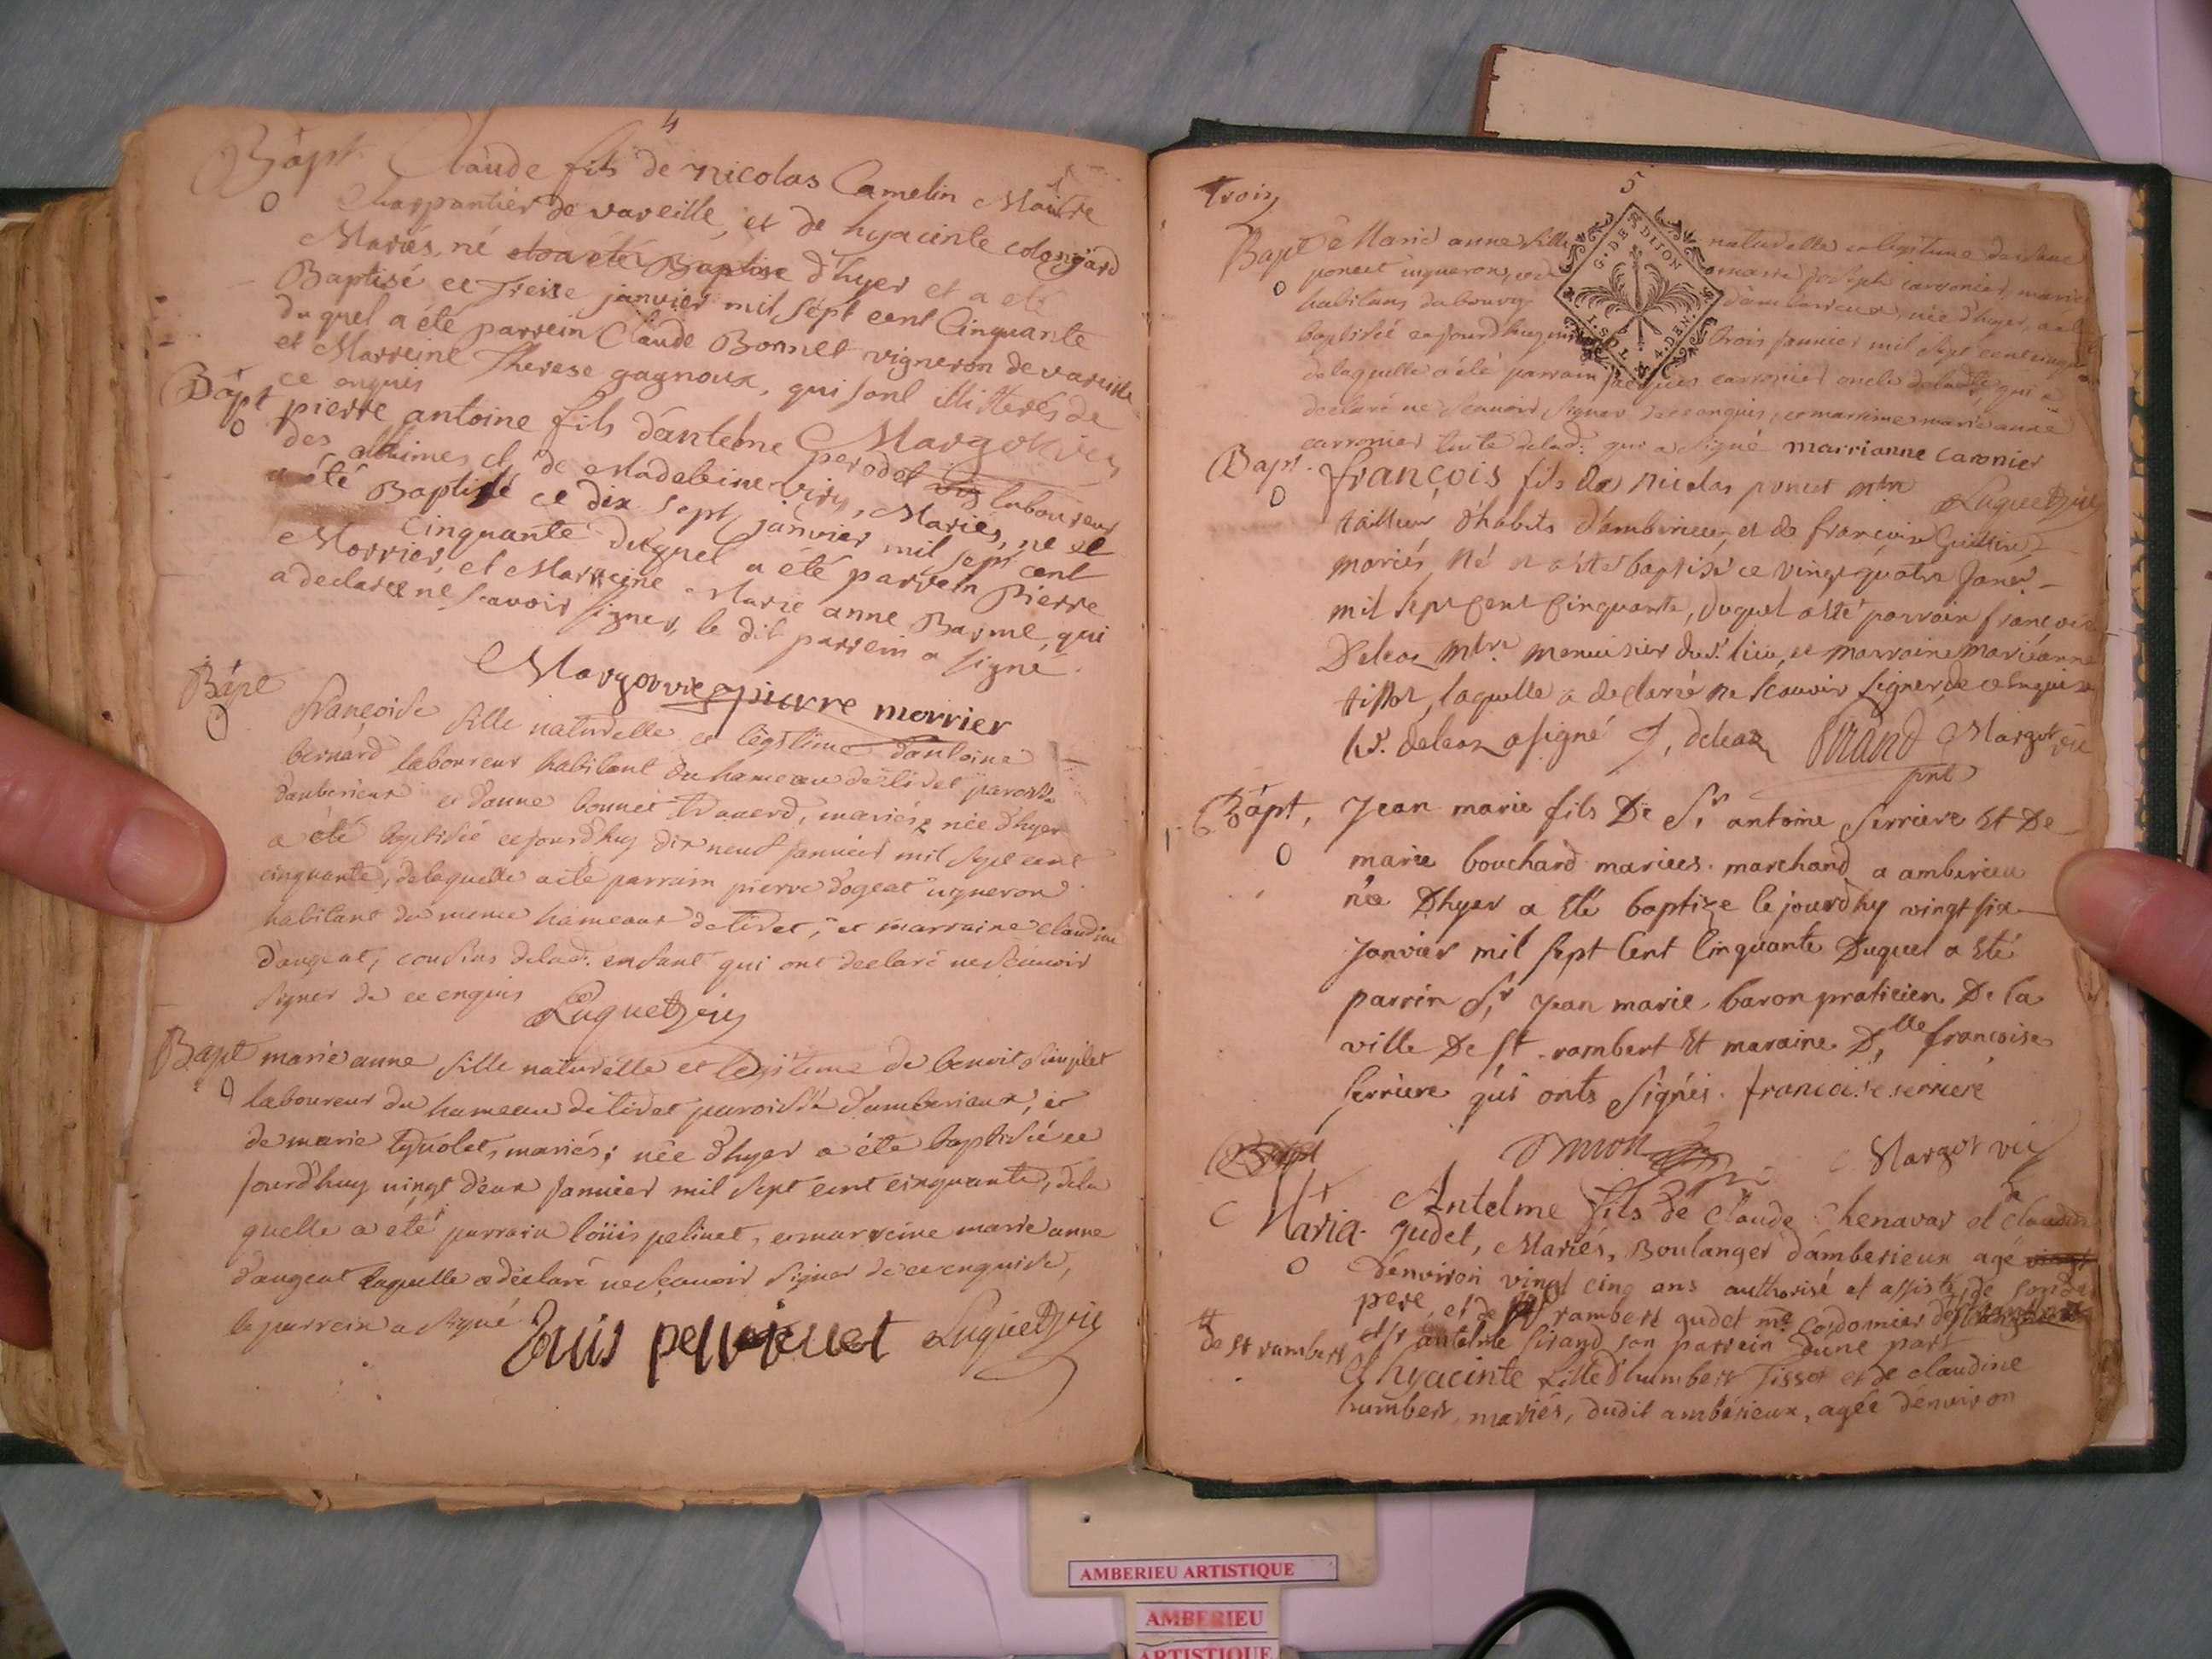 4
Bapt Claude fils de Nicolas Camelin Maitre
Charpantier de vareille, et de hyacinte colongard
Mariés, né et a eté Baptise d'hyer et a eté
Baptisé ce Treize janvier mil sept cent Cinquante
duquel a été parrein Claude Bonnet vigneron de vareille
et Marreine Therese gagnoux, qui sont illitterés de
ce enquis Margot vic
Bapt pierre antoine fils d'antelme perodet laboureur
des allimes et de Madeleine viry, Mariés, né et
a été Baptisé ce dix sept janvier mil sept cent
Cinquante duquel a été parrein Pierre
Morrier, et Marreine Marie anne Barme, qui
a declaree ne scavoir signer, le dit parrein a signé
Margot vic pierre morrier
Bapt françoise fille naturelle et legitime d'antoine
bernard laboureur habitant du hameau de tiret paroisse
d'amberieux et d'anne bonnet travaerd, mariés, née d'hyer
a été baptisée cejourd'huy dix neuf janvier mil sept cent
cinquante, de laquelle a été parrain pierre d'ogeat vigneron
habitant du meme hameaux de tiret, et marraine claudine
d'augeat, cousins delad. enfant qui ont declaré ne scauoir
signer de ce enquis Luquet vic
Bapt marie anne fille naturelle et legitime de benoit
laboureur du hameau de tiret paroisse d'amberieux, et
de marie mariés; née d'hyer a été baptisée ce
jourd'huy vingt deux janvier mil sept cent cinquante, dela
quelle a été parrain loüis pelinet, et marreine marie anne
d'augeat laquelle a déclaré ne scauoir signer de ce enquise,
le parrein a signé
Luquet vic
trois
5
G. DE DIJON
4. DEN.
Bapt Marie anne fille naturelle et legitime de
poncet vigneron, et de josepte carronier, mariés
habitans du bourg d'amberieux, née d'hyer, a eté
baptisée cejourd'huy vingt trois janvier mil sept cent cinquante
de laquelle a été parrain jacques carronier oncle de ladte, qui a
declaré ne scauoir signer de ce enquis, et marreine marie anne
carronier tante delad. qui a signé marrianne caronier
Luquet vic
Bapt. françois fils de Nicolas poncet mtre
tailleur d'habits d'amberieu, et de françoise
mariés, né et a été baptisé ce vingt quatre janvr
mil sept cent cinquante, duquel a été parrain françois
Deleaz mtre menuisier dud. lieu, et marraine marieanne
tissot, laquelle a declaré ne scauoir signer de ce enquise
led. deleaz a signé f, deleaz Margot vic
Bapt, Jean marie fils De Sr antoine serriere Et De
marie bouchard mariees. marchand a amberieu
née Dhyer a Eté baptize lejourdhy vingt six
janvier mil sept Cent Cinquante Duquel a Eté
parrin Sr Jean marie baron praticien De la
ville De St rambert Et maraine Dlle francoise
serriere qui onts signés. francoise serriere
Margot vic
Bapt
Maria. Antelme fils de Claude Chenavar et claudine
gudet, Mariés, Boulanger d'amberieux agé vingt
d'environ vingt cinq ans authorisé et assisté de sondit
pere, et de rambert gudet me Cordonnier
de st rambert et sr antelme sirand son parrein d'une part
Et hyacinte fille d'humbert Tissot et de claudine
humbert, mariés, dudit amberieux, agée d'environ
AMBERIEU ARTISTIQUE
AMBERIEU
ARTISTIQUE